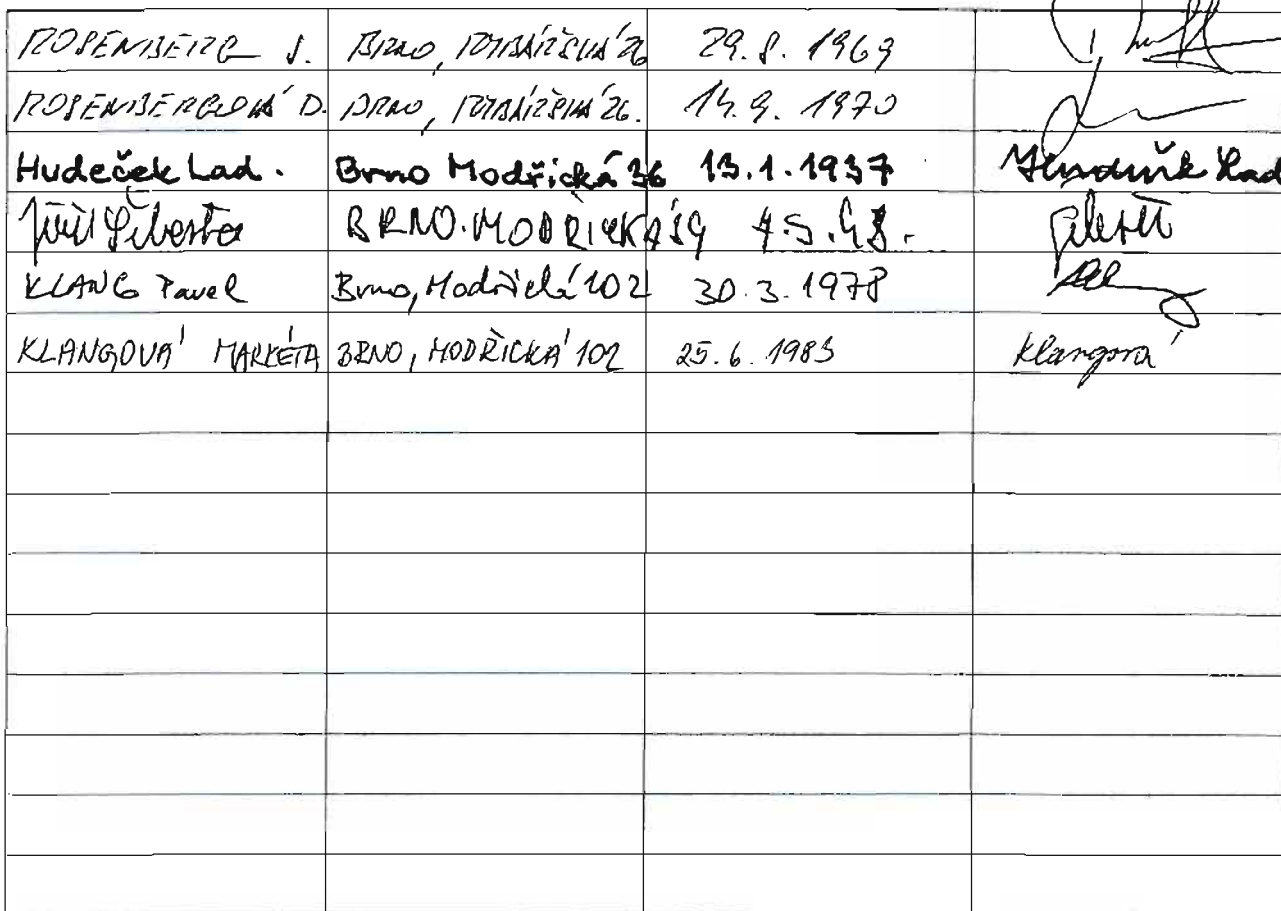 ROSENBERG J. BRNO, RYBÁŘSKÁ 26 29.8.1969
ROSENBERGOVÁ D. BRNO, RYBÁŘSKÁ 26. 14.9.1970
Hudeček Lad. Brno Modřická 36 13.1.1937 Hudeček Lad
Jiří Šebesta BRNO. MODŘICKÁ 59 7.5.48.
KLANG Pavel Brno, Modřická 102 30.3.1978
KLANGOVÁ MARKÉTA BRNO, MODŘICKÁ 102 25.6.1983 Klangová